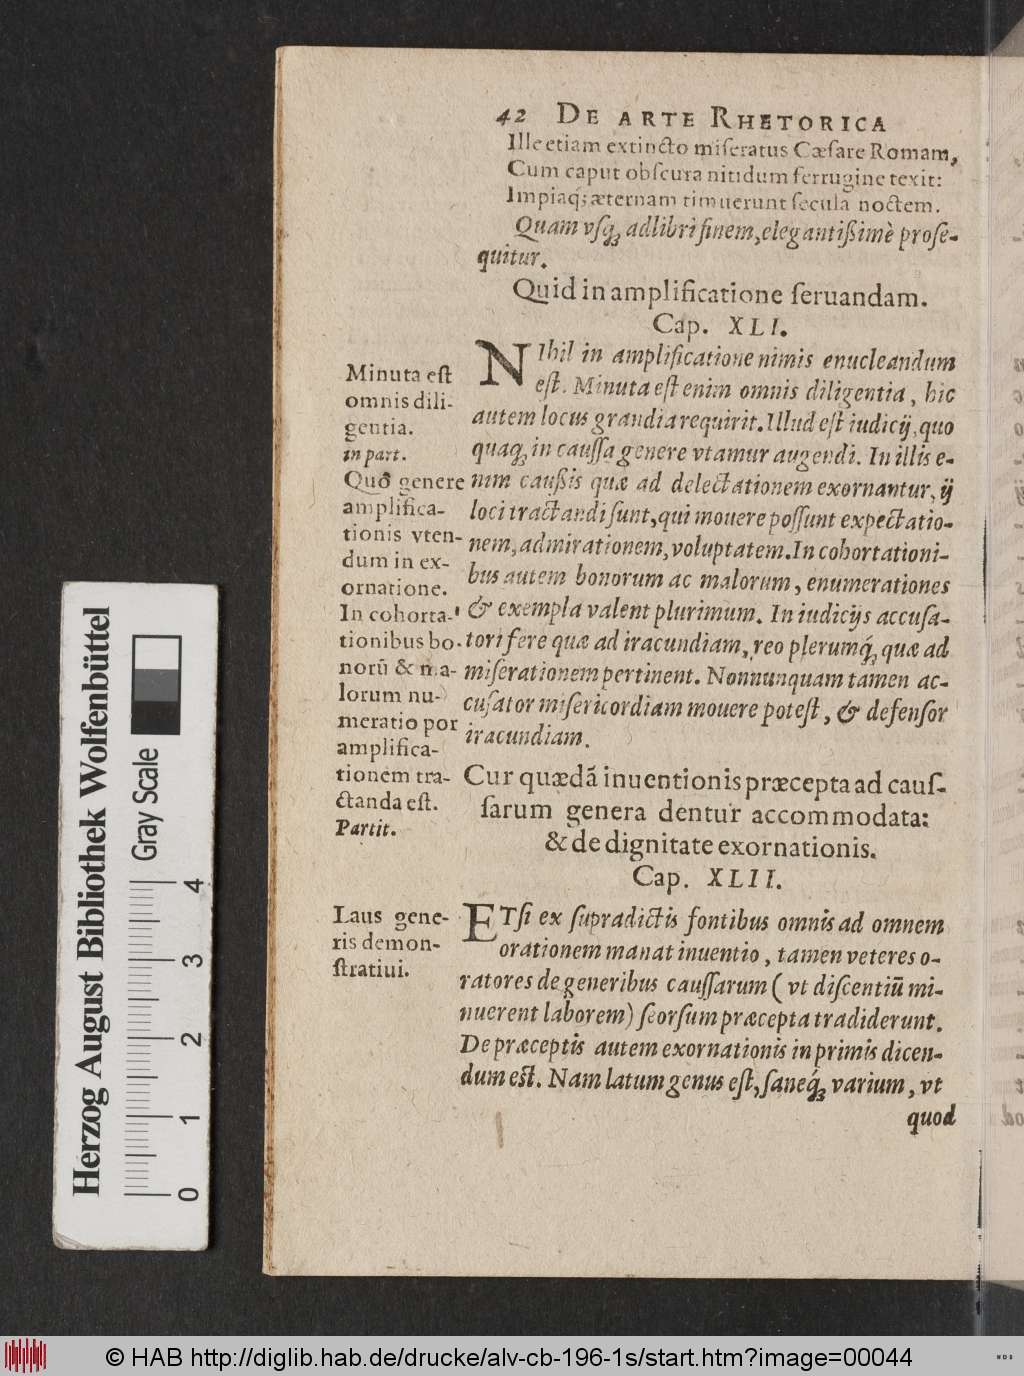 42 DE ARTE RHETORICA
Ille etiam extincto miſeratus Cæſare Romam,
Cum caput obſcura nitidum ferrugine texit:
Impiaq́; æternam timuerunt ſecula noctem.
Quam vſq; ad libri finem, elegantißimè proſe-
quitur.
Quid in amplificatione ſeruandam.
Cap. XLI.
NIhil in amplificatione nimis enucleandum
eſt. Minuta eſt enim omnis diligentia, hic
autem locus grandia requirit. Illud eſt iudicij, quo
quaq; in cauſſa genere vtamur augendi. In illis e-
nim caußis quæ ad delectationem exornantur, ij
loci tractandi ſunt, qui mouere poſſunt expectatio-
nem, admirationem, voluptatem. In cohortationi-
bus autem bonorum ac malorum, enumerationes
& exempla valent plurimum. In iudicijs accuſa-
tori fere quæ ad iracundiam, reo plerumq́; quæ ad
miſerationem pertinent. Nonnunquam tamen ac-
cuſator miſericordiam mouere poteſt, & defenſor
iracundiam.
Minuta eſt
omnis dili-
gentia.
in part.
Quo genere
amplifica-
tionis vten-
dum in ex-
ornatione.
In cohorta-
tionibus bo-
norũ & ma-
lorum nu-
meratio por
amplifica-
tionem tra-
ctanda eſt.
Partit.
Cur quædã inuentionis præcepta ad cauſ-
ſarum genera dentur accommodata:
& de dignitate exornationis.
Cap. XLII.
ETſi ex ſupradictis fontibus omnis ad omnem
orationem manat inuentio, tamen veteres o-
ratores de generibus cauſſarum (vt diſcentiũ mi-
nuerent laborem) ſeorſum præcepta tradiderunt.
De præceptis autem exornationis in primis dicen-
dum est. Nam latum genus eſt, ſaneq́; varium, vt
quod
Laus gene-
ris demon-
ſtratiui.
Herzog August Bibliothek Wolfenbüttel
Gray Scale
0 1 2 3 4
© HAB http://diglib.hab.de/drucke/alv-cb-196-1s/start.htm?image=00044